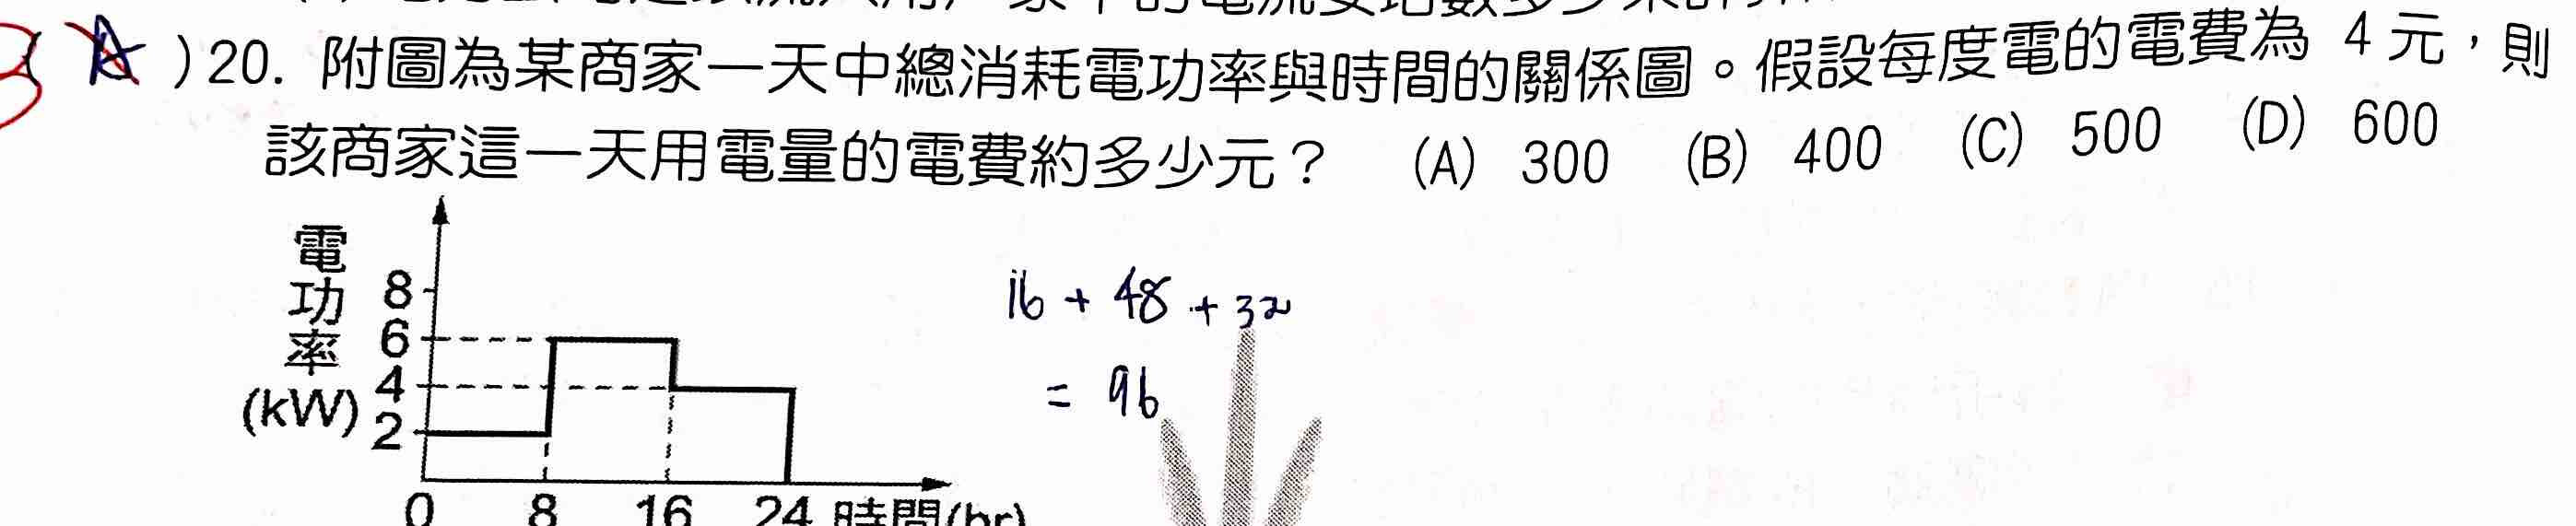 B ( A )20. 附圖為某商家一天中總消耗電功率與時間的關係圖。假設每度電的電費為 4 元，則
該商家這一天用電量的電費約多少元？ (A) 300 (B) 400 (C) 500 (D) 600
電功率
(kW)
8
6
4
2
0 8 16 24 時間(hr)
16 + 48 + 32
= 96